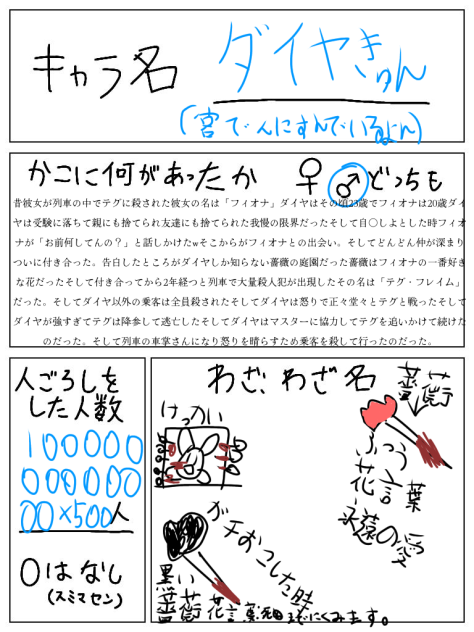 キャラ名
ダイヤきゅん
(宮でんにすんでいるよん)
かこに何があったか ♀ ♂ どっちも
昔彼女が列車の中でテグに殺された彼女の名は「フィオナ」ダイヤはその頃23歳でフィオナは20歳ダイ
ヤは受験に落ちて親にも捨てられ友達にも捨てられた我慢の限界だったそして自〇しよとした時フィオ
ナが「お前何してんの？」と話しかけたwそこからがフィオナとの出会い。そしてどんどん仲が深まり
ついに付き合った。告白したところがダイヤしか知らない薔薇の庭園だった薔薇はフィオナの一番好き
な花だったそして付き合ってから2年経つと列車で大量殺人犯が出現したその名は「テグ・フレイム」
だった。そしてダイヤ以外の乗客は全員殺されたそしてダイヤは怒りで正々堂々とテグと戦ったそして
ダイヤが強すぎてテグは降参して逃亡したそしてダイヤはマスターに協力してテグを追いかけて続けた
のだった。そして列車の車掌さんになり怒りを晴らすため乗客を殺して行ったのだった。
人ごろしを
した人数
100000
000000
00×500人
0はなし
(スミマセン)
わざ、わざ名
けっかい
薔薇
ふつう
花言葉
永遠の愛
ガチおこした時
黒い
薔薇 花言葉
にくみます。